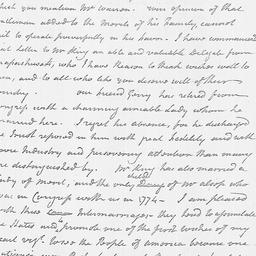 which you mention Mr Warren. Your opinion of that
gentleman added to the Morals of his Family, cannot
fail to operate powerfully in his favor. I have communicated
that Letter to Mr King an able and valuable Delegate from
Massachusetts, who I have Reason to think wishes well to
you, and to all who like you deserve well of their
Country. our friend Gerry has retired from
Congress with a charming amiable Lady whom he
married here. I regret his absence, for he discharged
the Trust reposed in him with great fidelity and with
more Industry and persevering attention than many
are distinguished by. Mr King has also married a
Lady of merit, and the only child of Mr alsop who
was in Congress with us in 1774 — I am pleased
with these Intermarriages. they tend to assimilate
the States and promote one of the first wishes of my
heart viz. to see the People of america become one